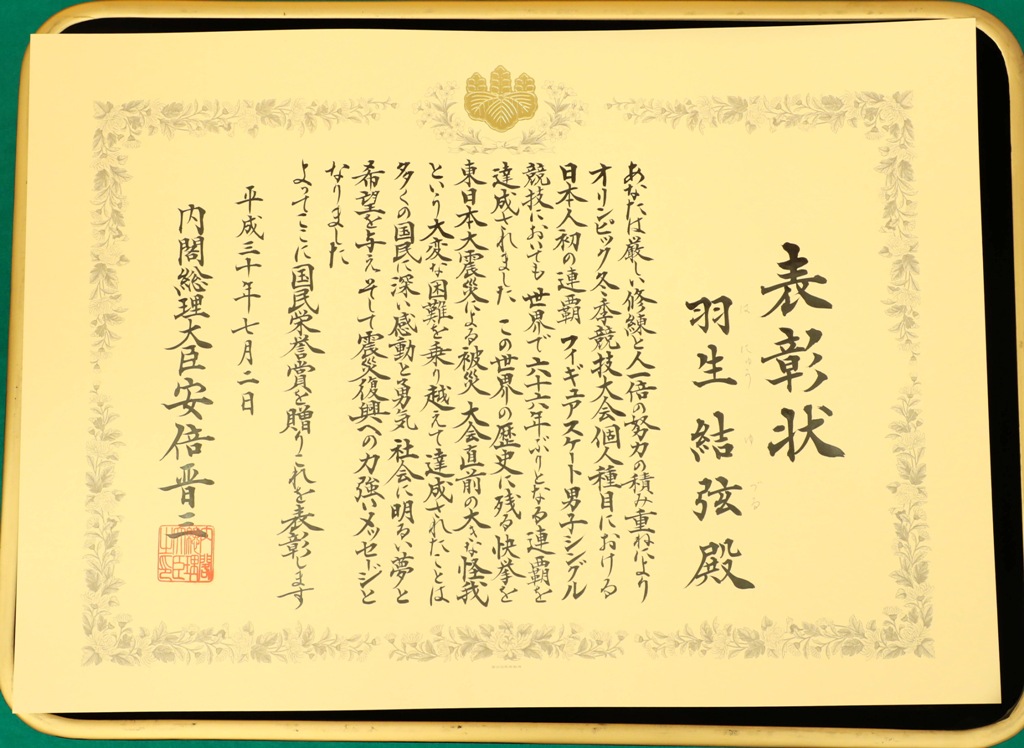 表彰状
羽生結弦殿
はにゅうゆづる
あなたは厳しい修練と人一倍の努力の積み重ねにより
オリンピック冬季競技大会個人種目における
日本人初の連覇 フィギュアスケート男子シングル
競技においても 世界で六十六年ぶりとなる連覇を
達成されました この世界の歴史に残る快挙を
東日本大震災による被災 大会直前の大きな怪我
という大変な困難を乗り越えて達成されたことは
多くの国民に深い感動と勇気 社会に明るい夢と
希望を与え そして震災復興への力強いメッセージと
なりました
よってここに国民栄誉賞を贈りこれを表彰します
平成三十年七月二日
内閣総理大臣安倍晋三